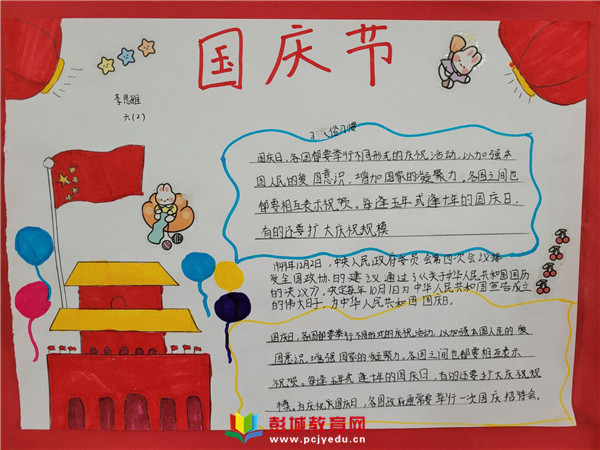 国庆节
李思雕
六(2)
国庆日,各国都要举行不同形式的庆祝活动,以加强本
国人民的爱国意识,增加国家的凝聚力。各国之间也
都要相互表示祝贺。每逢五年或逢十年的国庆日,
有的还要扩大庆祝规模
1949年12月2日,中央人民政府委员会第四次会议接
受全国政协的建议通过了《关于中华人民共和国国历
的决议》,决定每年10月1日为中华人民共和国宣告成立
的伟大日子,为中华人民共和国国庆日。
国庆日,各国都要举行不同形式的庆祝活动,以加强本国人民的爱
国意识,增强国家的凝聚力。各国之间也都要相互表示
祝贺。每逢五年或逢十年的国庆日,有的还要扩大庆祝规
模。为庆祝国庆日,各国政府通常要举行一次国庆招待会。
彭城教育网
www.pcjyedu.cn